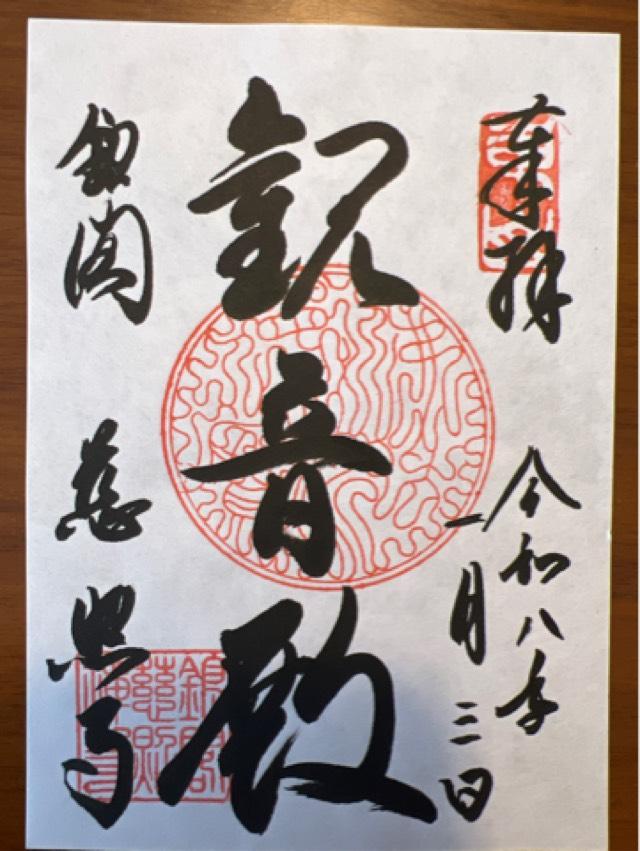 奉拝
令和八年
一月三日
観音殿
銀閣 慈照寺